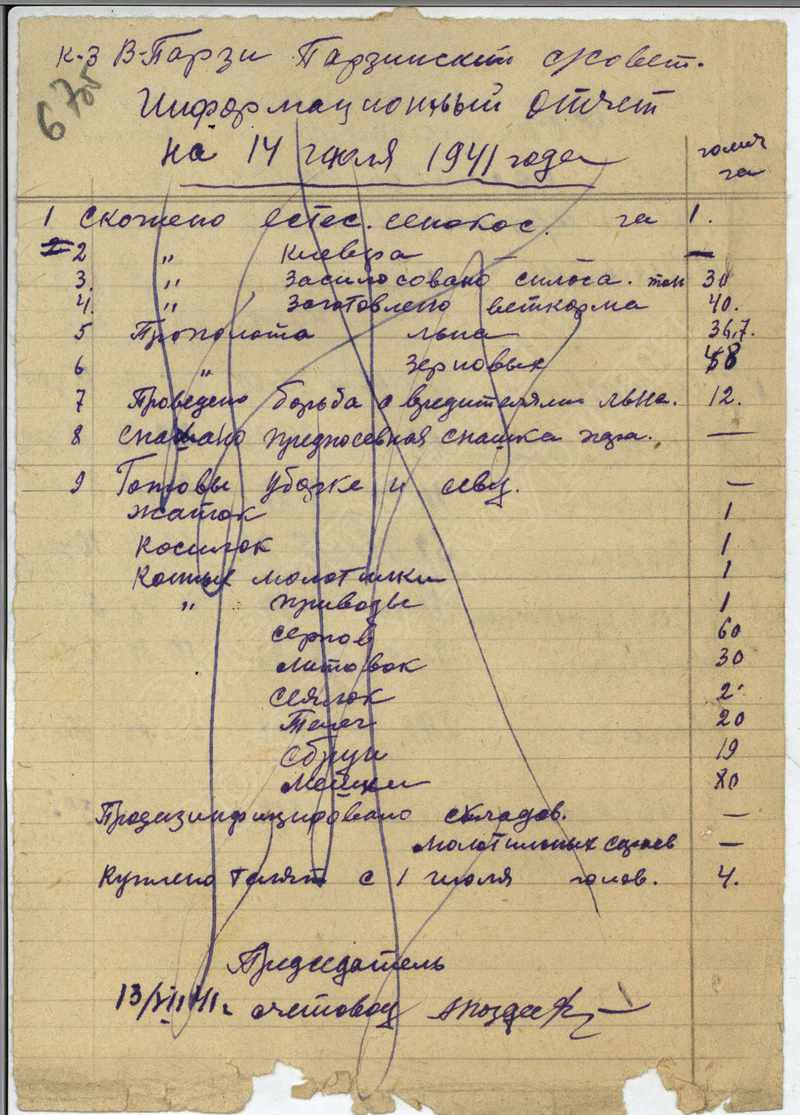 к-з В-Парзи Парзинский с/совет.
Информационный отчет
на 14 июля 1941 года
га
1 Скошено естес. сенокос. га 1.
2 " клевера — —
3. " Засилосовано силоса. тон 30
4. " Заготовлено веткорма 40.
5 Прополото льна 36,7.
6 " зерновых 58
7 Проведено борьба с вредителями льна. 12.
8 Спахано предпосевная спашка пара. —
9 Готовы убогке и севу. —
жаток 1
косилок 1
Конных молотилки 1
" приводы 1
серпов 60
литовок 30
сеялок 2
Телег 20
Сбруи 19
мешки 80
Продизинфицировано складов. —
молотильных сараев —
Куплено телят с 1 июля голов. 4.
Председатель
13/VII 41 г счетовод